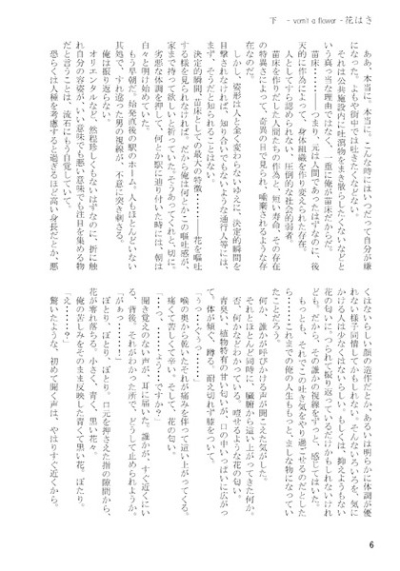 下　- vomit a flower - 花はき
ああ、本当に、本当に。こんな時にはいつだって自分が嫌
になった。よもや街中では吐きたくないなど。
それは公共施設内に吐瀉物をまき散らしたくないなどと
いう真っ当な理由ではなく、一重に俺が苗床だからだ。
苗床――つまり、元は人間であったはずなのに、後
天的に作為によって、身体組織を作り変えられた存在。
人としてすら認められない、圧倒的な社会的弱者。
苗床を作りだした人間たちの作為と、短い寿命、その存在
の特異さによって、奇異の目で見られ、唾棄されるような存
在なのだ。
しかし、姿形は人と全く変わらないゆえに、決定的瞬間を
目撃されなければ、知り合いでもないような通行人等には、
まず、そうだと知られることはない。
決定的瞬間、苗床としての最大の特徴………花を嘔吐
する様を見られなければ。だから俺は何とかこの嘔吐感が、
家まで持って欲しいと祈っていた。そうあってくれと、切に。
劣悪な体調を押して、何とか駅に辿り付いた時には、朝は
白々と明け始めていた。
もう早朝だ。始発直後の駅のホーム、人もほとんどいない
其処で、すれ違った男の視線が、不意に突き刺さる。
俺は振り返らない。
オリエンタルなど、然程珍しくもないはずなのに、折に触
れ自分の容姿が、いい意味でも悪い意味でも注目を集める物
だと言うことは、流石にもう自覚していて。
恐らくは人種を考慮すると過ぎるほど高い身長だとか、悪
くはないらしい顔の造作だとか、あるいは明らかに体調が優
れない様子に同情してかもしれない。そんないろいろを、気に
かける人は少なくはないらしい。もしくは、抑えようもない
花の匂いに、つられて振り返っているだけかもしれないけれ
ども。だから、その誰かの視線をずっと、感じてはいた。
もっとも、それでこの吐き気をやり過ごせるのだとした
ら………これまでの俺の人生ももっと、ましな物になってい
たことだろう。
何か、誰かが呼びかける声が聞こえた気がした。
それとほとんど同時に、臓腑から這い上がってきた何か。
否、何かなどわかっている。噎せるような花の匂い。
青臭い、植物特有の甘い匂いが、口の中いっぱいに広がっ
て、体が傾ぐ。蹲る。耐え切れず膝をついて。
「うっ……ぐうっ……」
喉の奥から軋いたそれが痛みを伴って這い上がってくる。
痛くて苦しくて辛い。そして、花の匂い。
「……っ、……よう……ですか？」
聞き覚えのない声が、耳に届いた。誰かが、すぐ近くにい
る、背後。それがわかった所で、どうして止められようか。
「がぁっ……！」
ぽとり、ぽとり、ぽとり。口元を押さえた指の隙間から、
花が零れ落ちる。小さく、青く、黒い花々。
俺の苦しみをそのまま反映した青くて黒い花。ぽたり。
「え……？」
驚いたような、初めて聞く声は、やはりすぐ近くから。
6